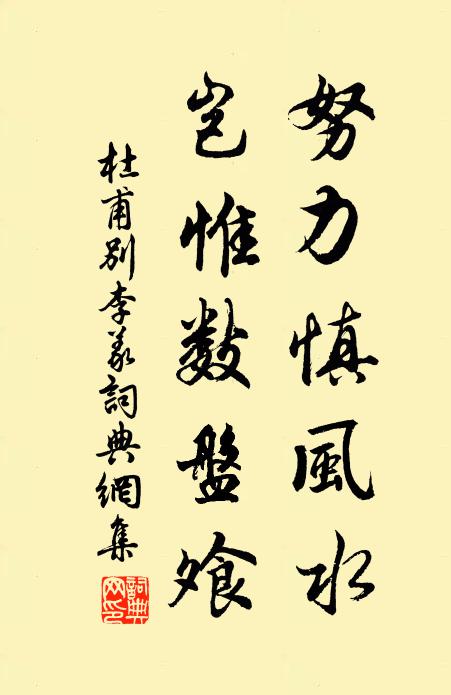 努力慎風水
豈惟數盤飧
杜甫別李義詞典網集
詞典網印